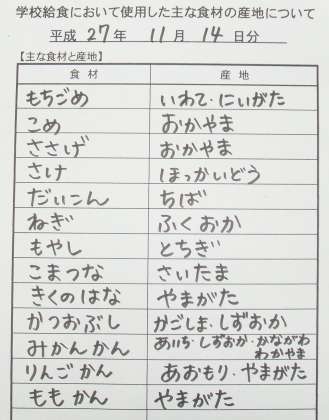 学校給食において使用した主な食材の産地について
平成 27 年 11 月 14 日分
【主な食材と産地】
食材 産地
もちごめ いわて・にいがた
こめ おかやま
ささげ おかやま
さけ ほっかいどう
だいこん ちば
ねぎ ふくおか
もやし とちぎ
こまつな さいたま
きくのはな やまがた
かつおぶし かごしま・しずおか
みかんかん あいち・しずおか・かながわ
わかやま
りんごかん あおもり・やまがた
ももかん やまがた